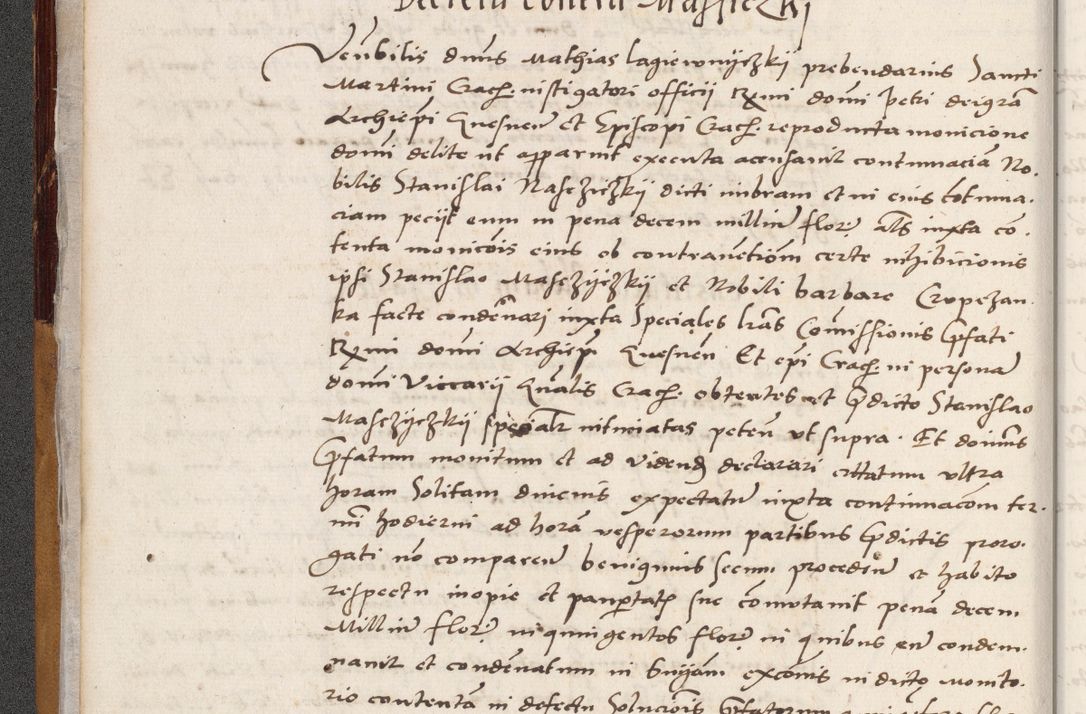 Decretu contra Massiczkj
Venerbilis dnus Mathias lagiewnyczkj prebendarius Sancti
Martini Crach. instigatori officii Rmi domi petri dei gra
Archiepi Gnesnen et Episcopi Crach. reproducta monicione
domi delite ut apparuit executa accusavit contumacia No-
bilis Stanislai Maschziczkij dicti in
ciam peciit eum in pena decem milliu flor als iuxta co-
tenta monicois eius ob contraventiom certe inhibicionis
ipsi Stanislao Maschzyczkij et Nobili barbare Czepczan-
ka facte condenari iuxta speciales lras Comissionis pfati
Rmi domi Archiepi Gnesnen Et epi Crach. in persona
domi Viccarij Gnalis Crach. obtentas et pdicto Stanislao
Masczyczkij intimatas peten ut supra. Et domus
pfatum monitum et ad vidend declarari citatum ultra
horam Solitam diucius expectatu iuxta continuacom ter-
mi hodierni ad hora vesperorum partibus pdictis proro-
gati no comparen benignius secum proceden et habito
respectu inopie et paupertatis sue comutavit pena decem
Milliu flor in quingentos flor in quibus eu condem-
navit et condenatum in huiusm excois in dicto monito-
rio contenta in defectu Solucois pfatorum